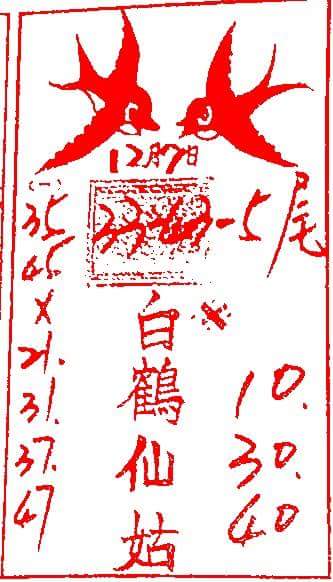 12月7日
33
-5尾
35
45
X
21.
31.
37.
47
白鶴仙姑
10.
30.
40